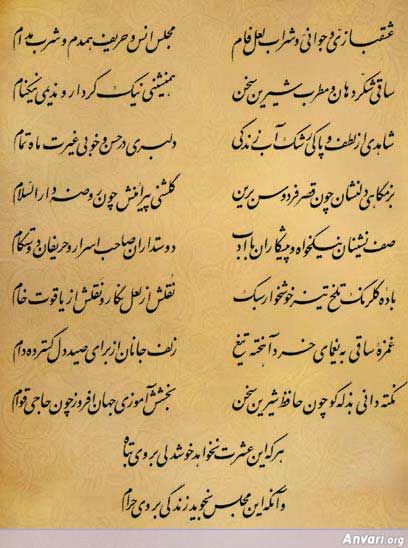 عشقبازی و جوانی و شراب لعل فام مجلس انس و حریف همدم و شرب مدام
ساقی شکر دهان و مطرب شیرین سخن همنشینی نیک کردار و ندیمی نیکنام
شاهدی از لطف و پاکی رشک آب زندگی دلبری در حسن و خوبی غیرت ماه تمام
بزمگاهی دلنشان چون قصر فردوس برین گلشنی پیرامنش چون روضهٔ دارالسلام
صف نشینان نیکخواه و پیشکاران با ادب دوستداران صاحب اسرار و حریفان دوستکام
بادهٔ گلرنگ تلخ تیز خوشخوار سبک نقلش از لعل نگار و نقلش از یاقوت خام
غمزهٔ ساقی به یغمای خرد آهخته تیغ زلف جانان از برای صید دل گسترده دام
نکته دانی بذله گو چون حافظ شیرین سخن بخشش آموزی جهان افروز چون حاجی قوام
هر که این عشرت نخواهد خوشدلی بر وی تباه
وآنکه این مجلس نجوید زندگی بر وی حرام
Anvari.org